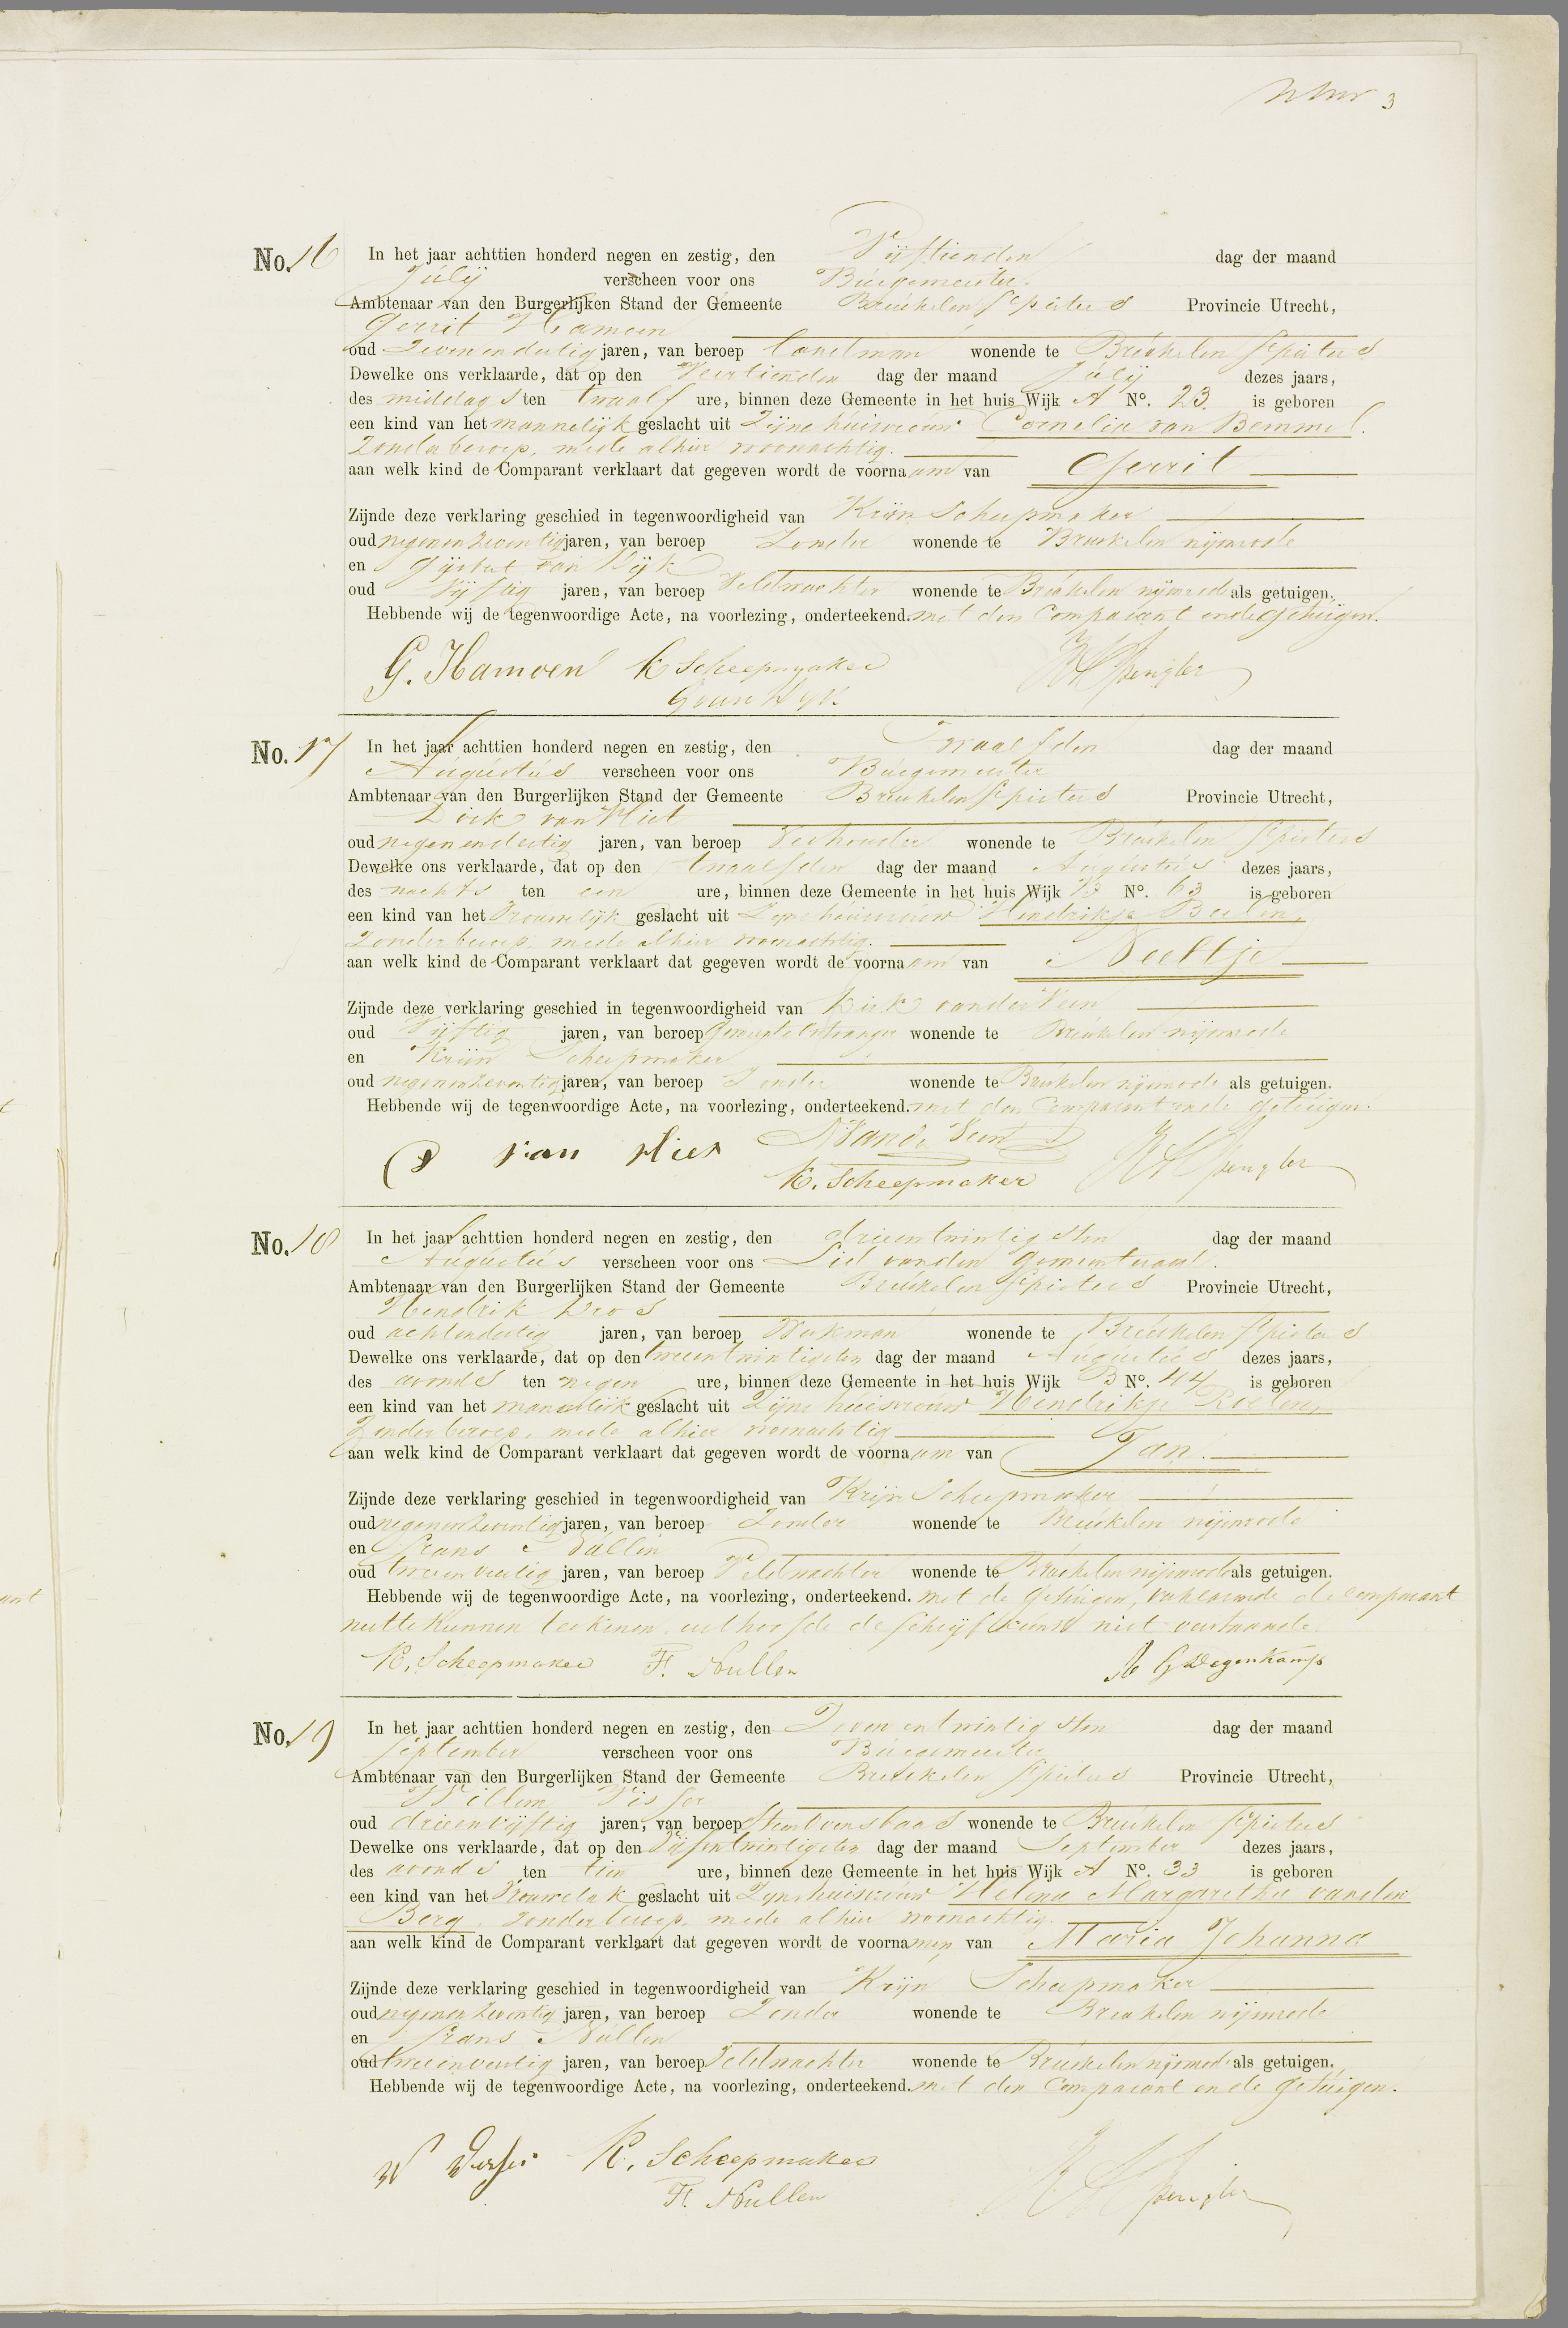 3
No. 16 In het jaar achttien honderd negen en zestig, den Vijftienden dag der maand
Julij verscheen voor ons Burgemeester
Ambtenaar van den Burgerlijken Stand der Gemeente Breukelen St pieters Provincie Utrecht,
Gerrit Hamoen
oud Zevenendertig jaren, van beroep bouwman wonende te Breukelen St pieters
Dewelke ons verklaarde, dat op den Veertienden dag der maand Julij dezes jaars,
des middags ten twaalf ure, binnen deze Gemeente in het huis Wijk A No. 23. is geboren
een kind van het mannelijk geslacht uit Zijne huisvrouw Cornelia van Bemmel.
Zonder beroep, mede alhier woonachtig.
aan welk kind de Comparant verklaart dat gegeven wordt de voornaam van Gerrit
Zijnde deze verklaring geschied in tegenwoordigheid van Krijn Scheepmaker
oud negenenzeventig jaren, van beroep Zonder wonende te Breukelen nijenrode
en Gijsbert van Dijk
oud Vijftig jaren, van beroep Veldwachter wonende te Breukelen nijenrode als getuigen.
Hebbende wij de tegenwoordige Acte, na voorlezing, onderteekend. met den Comparant en de getuigen.
G. Hamoen K Scheepmaker Spengler
G van Dyk.
No. 17 In het jaar achttien honderd negen en zestig, den Twaalfden dag der maand
Augustus verscheen voor ons Burgemeester
Ambtenaar van den Burgerlijken Stand der Gemeente Breukelen St pieters Provincie Utrecht,
Dirk van Vliet
oud negenendertig jaren, van beroep Veehouder wonende te Breukelen St pieters
Dewelke ons verklaarde, dat op den twaalfden dag der maand Augustus dezes jaars,
des nachts ten een ure, binnen deze Gemeente in het huis Wijk B No. 63 is geboren
een kind van het Vrouwelijk geslacht uit Zijne huisvrouw Hendrikje
Zonder beroep, mede alhier woonachtig.
aan welk kind de Comparant verklaart dat gegeven wordt de voornaam van Neeltje
Zijnde deze verklaring geschied in tegenwoordigheid van Dirk van der Veen
oud Vijftig jaren, van beroep Gemeente Ontvanger wonende te Breukelen nijenrode
en Krijn Scheepmaker
oud negenenzeventig jaren, van beroep Zonder wonende te Breukelen nijenrode als getuigen.
Hebbende wij de tegenwoordige Acte, na voorlezing, onderteekend. met den Comparant en de getuigen.
D van Vliet Spengler
K. Scheepmaker
No. 18 In het jaar achttien honderd negen en zestig, den drieentwintigsten dag der maand
Augustus verscheen voor ons Lid van den Gemeenteraad.
Ambtenaar van den Burgerlijken Stand der Gemeente Breukelen St pieters Provincie Utrecht,
Hendrik Vros
oud achtendertig jaren, van beroep Werkman wonende te Breukelen St pieters
Dewelke ons verklaarde, dat op den tweeentwintigsten dag der maand Augustus dezes jaars,
des avonds ten negen ure, binnen deze Gemeente in het huis Wijk B No. 44 is geboren
een kind van het mannelijk geslacht uit Zijne huisvrouw Hendrikje Roelen,
Zonder beroep, mede alhier woonachtig
aan welk kind de Comparant verklaart dat gegeven wordt de voornaam van Jan.
Zijnde deze verklaring geschied in tegenwoordigheid van Krijn Scheepmaker
oud negenenzeventig jaren, van beroep Zonder wonende te Breukelen nijenrode
en Frans Nullen
oud tweeenveertig jaren, van beroep Veldwachter wonende te Breukelen nijenrode als getuigen.
Hebbende wij de tegenwoordige Acte, na voorlezing, onderteekend. met de getuigen, verklarende de comparant
niet te kunnen teekenen uit hoofde de schrijfkunst niet verstaande.
K. Scheepmaker F. Nullen Degenkamp
No. 19 In het jaar achttien honderd negen en zestig, den Zevenentwintigsten dag der maand
September verscheen voor ons Burgemeester
Ambtenaar van den Burgerlijken Stand der Gemeente Breukelen St pieters Provincie Utrecht,
Willem Visser
oud drieenvijftig jaren, van beroep Steenovensbaas wonende te Breukelen St pieters
Dewelke ons verklaarde, dat op den Vijfentwintigsten dag der maand September dezes jaars,
des avonds ten tien ure, binnen deze Gemeente in het huis Wijk A No. 33 is geboren
een kind van het Vrouwelijk geslacht uit Zijne huisvrouw Helena Margaretha van den
Berg, Zonder beroep, mede alhier woonachtig.
aan welk kind de Comparant verklaart dat gegeven wordt de voornamen van Maria Johanna
Zijnde deze verklaring geschied in tegenwoordigheid van Krijn Scheepmaker
oud negenenzeventig jaren, van beroep Zonder wonende te Breukelen nijenrode
en Frans Nullen
oud tweeenveertig jaren, van beroep Veldwachter wonende te Breukelen nijenrode als getuigen.
Hebbende wij de tegenwoordige Acte, na voorlezing, onderteekend. met den Comparant en de getuigen.
W Visser K. Scheepmaker Spengler
F. Nullen